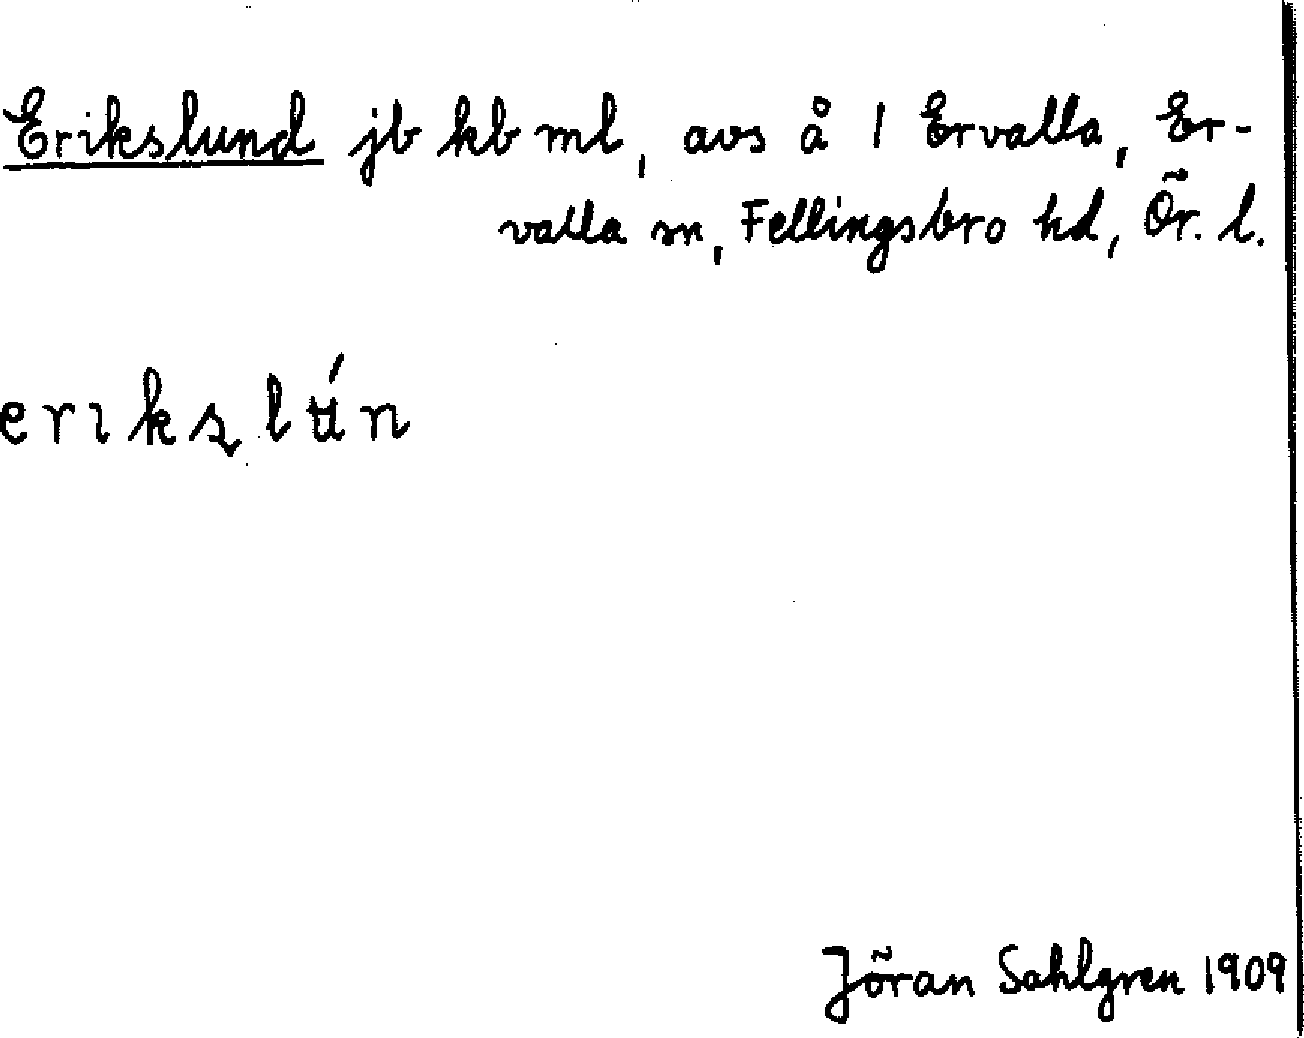 Erikslund jb kb ml, avs å 1 Ervalla, Er-
valla sn, Fellingsbro hd, Ör. l.
erikslún
Jöran Sahlgren 1909